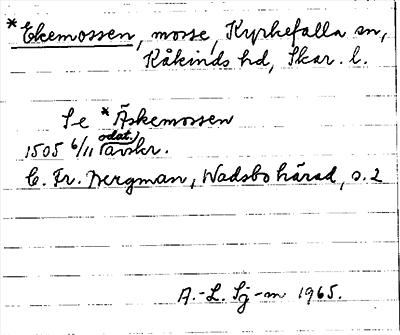 *Ekemossen, mosse, Kyrkefalla sn,
Kåkinds hd, Skar. l.
Se *Äskemossen
odat.
1505 6/11 (avskr.
C. Fr. Bergman, Wadsbo härad, s. 2
A.-L. Sj-m 1965.